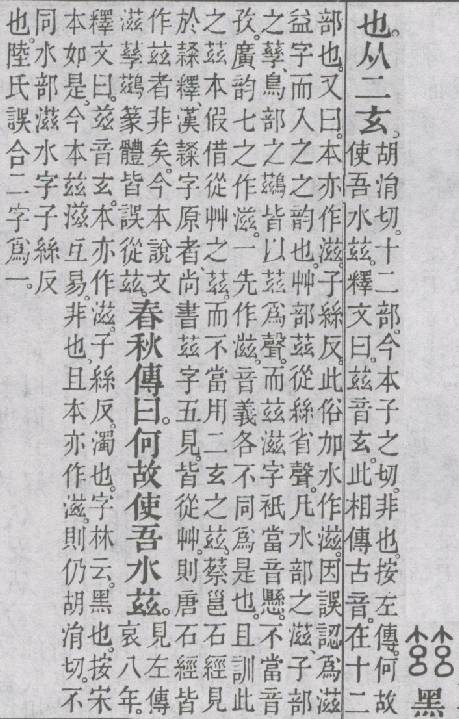 黑
也。从二玄。
胡涓切。十二部。今本子之切。非也。按左傳。何故
使吾水玆。釋文曰。玆音玄。此相傳古音。在十二
部也。又曰。本亦作滋。子絲反。此俗加水作滋。因誤認爲滋
益字而入之之韵也。艸部茲從絲省聲。凡水部之滋、子部
之孳、鳥部之鶿、皆以茲爲聲。而玆滋字祇當音懸。不當音
孜。廣韵七之作滋。一先作滋。音義各不同。爲是也。且訓此
之茲本假借從艸之茲。而不當用二玄之玆。蔡邕石經見
於隷釋、漢隷字原者、尚書茲字五見。皆從艸。則唐石經皆
作玆者非矣。今本說文
滋孳鶿篆體皆誤從玆。
春秋傳曰。何故使吾水玆。
見左傳
哀八年。
釋文曰。玆音玄。本亦作滋。子絲反。濁也。字林云。黑也。按宋
本如是。今本玆滋互易。非也。且本亦作滋。則仍胡涓切。不
同水部滋水字子絲反
也。陸氏誤合二字爲一。